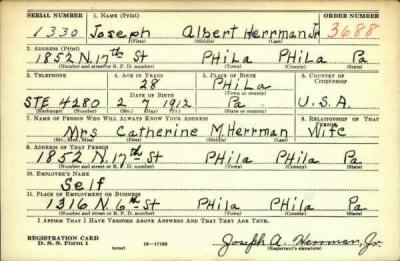 SERIAL NUMBER 1. NAME (Print) ORDER NUMBER
1330 Joseph Albert Herrman Jr 3688
(First) (Middle) (Last)
2. ADDRESS (Print)
1852 N. 17th St PHiLa PHiLa Pa
(Number and street or R. F. D. number) (Town) (County) (State)
3. TELEPHONE 4. AGE IN YEARS 5. PLACE OF BIRTH 6. COUNTRY OF CITIZENSHIP
28 PHiLa
DATE OF BIRTH (Town or county)
STE 4280 2 7 1912 Pa U.S.A.
(Exchange) (Number) (Mo.) (Day) (Yr.) (State or country)
7. NAME OF PERSON WHO WILL ALWAYS KNOW YOUR ADDRESS 8. RELATIONSHIP OF THAT PERSON
Mrs Catherine M. Herrman Wife
(Mr., Mrs., Miss) (First) (Middle) (Last)
9. ADDRESS OF THAT PERSON
1852 N. 17th St PHila PHila Pa
(Number and street or R. F. D. number) (Town) (County) (State)
10. EMPLOYER'S NAME
Self
11. PLACE OF EMPLOYMENT OR BUSINESS
1316 N. 6th St PHila PHila Pa
(Number and street or R. F. D. number) (Town) (County) (State)
I AFFIRM THAT I HAVE VERIFIED ABOVE ANSWERS AND THAT THEY ARE TRUE.
REGISTRATION CARD
D. S. S. Form 1 (over) 16—17105 Joseph A. Herrman, Jr.
(Registrant's signature)